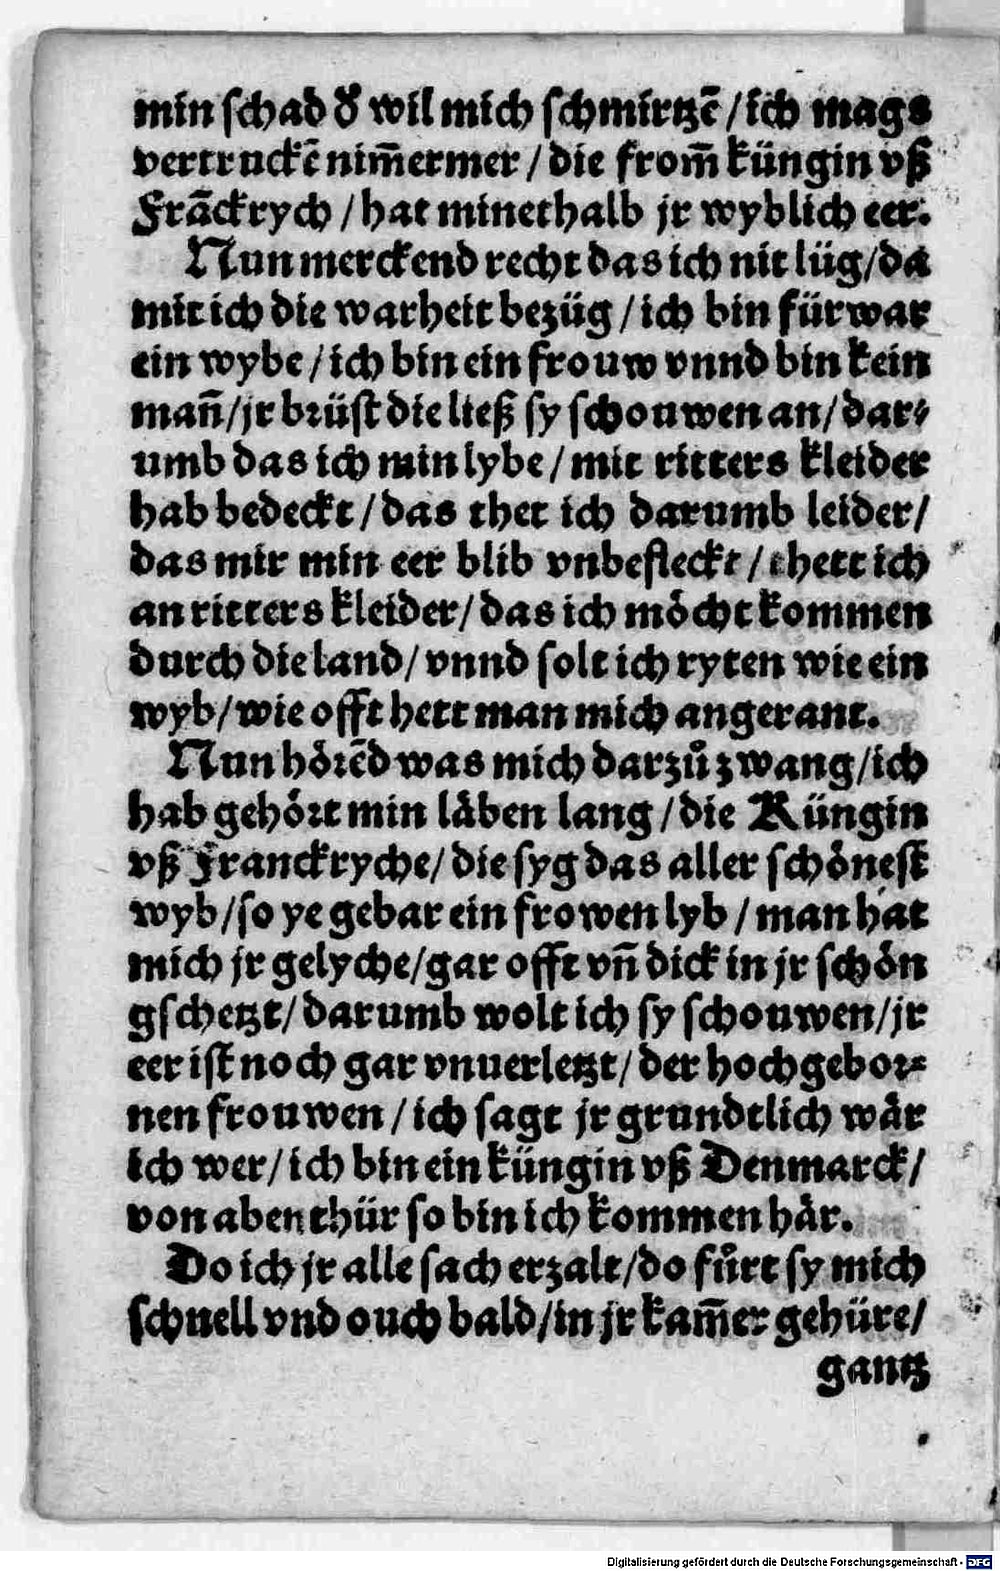 min schad d' wil mich schmirtzē / ich mags
vertruckē nim̄ermer / die from̄ küngin vß
Frāckrych / hat minethalb jr wyblich eer.
Nun merckend recht das ich nit lüg / da
mit ich die warheit bezüg / ich bin fürwar
ein wybe / ich bin ein frouw vnnd bin kein
mañ / jr brüst die ließ sy schouwen an / dar⸗
umb das ich min lybe / mit ritters kleider
hab bedeckt / das thet ich darumb leider /
das mir min eer blib vnbefleckt / thett ich
an ritters kleider / das ich möcht kommen
durch die land / vnnd solt ich ryten wie ein
wyb / wie offt hett man mich angerant.
Nun hörēd was mich darzů zwang / ich
hab gehört min läben lang / die Küngin
vß Franckryche / die syg das aller schönest
wyb / so ye gebar ein frowen lyb / man hat
mich jr gelyche / gar offt vñ dick in jr schön
gschetzt / darumb wolt ich sy schouwen / jr
eer ist noch gar vnuerletzt / der hochgebor⸗
nen frouwen / ich sagt jr grundtlich wär
ich wer / ich bin ein küngin vß Denmarck /
von abenthür so bin ich kommen här.
Do ich jr alle sach erzalt / do fůrt sy mich
schnell vnd ouch bald / in jr kam̄er gehüre /
gantz
Digitalisierung gefördert durch die Deutsche Forschungsgemeinschaft - DFG